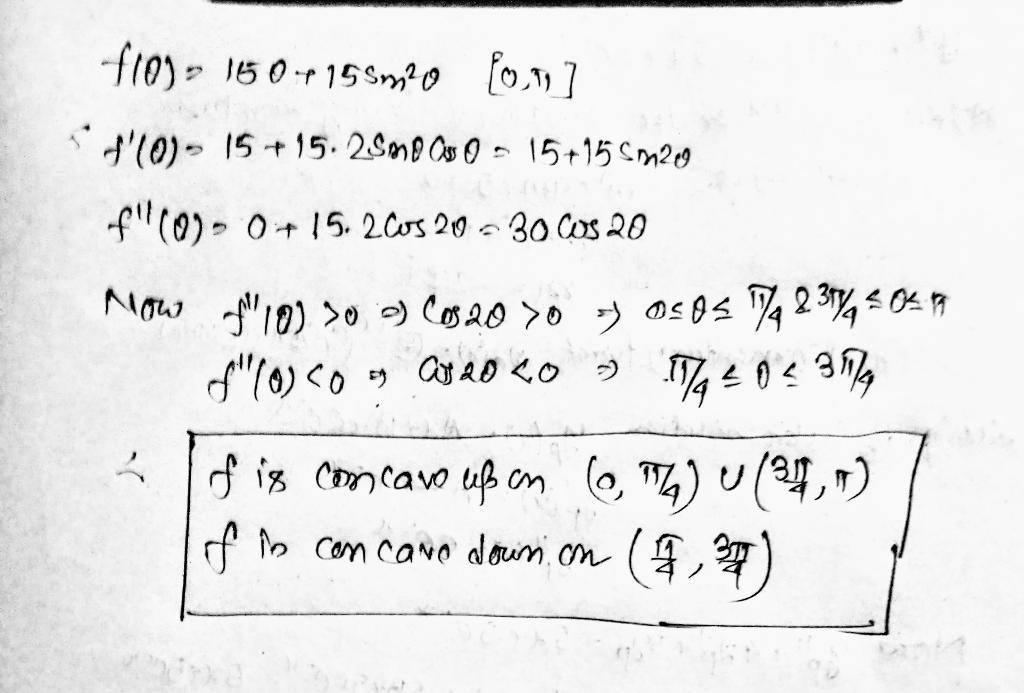 f(θ) = 15θ + 15 Sin²θ [0,π]
f'(θ) = 15 + 15. 2Sinθ Cosθ = 15+15 Sin2θ
f''(θ) = 0 + 15. 2Cos 2θ = 30 Cos 2θ
Now f''(θ) >0 ⇒ Cos2θ >0 ⇒ 0≤θ≤ π/4 & 3π/4 ≤θ≤π
f''(θ) <0 ⇒ Cos2θ <0 ⇒ π/4 ≤ θ ≤ 3π/4
∴ f is concave up on (0, π/4) ∪ (3π/4, π)
f is concave down on (π/4, 3π/4)